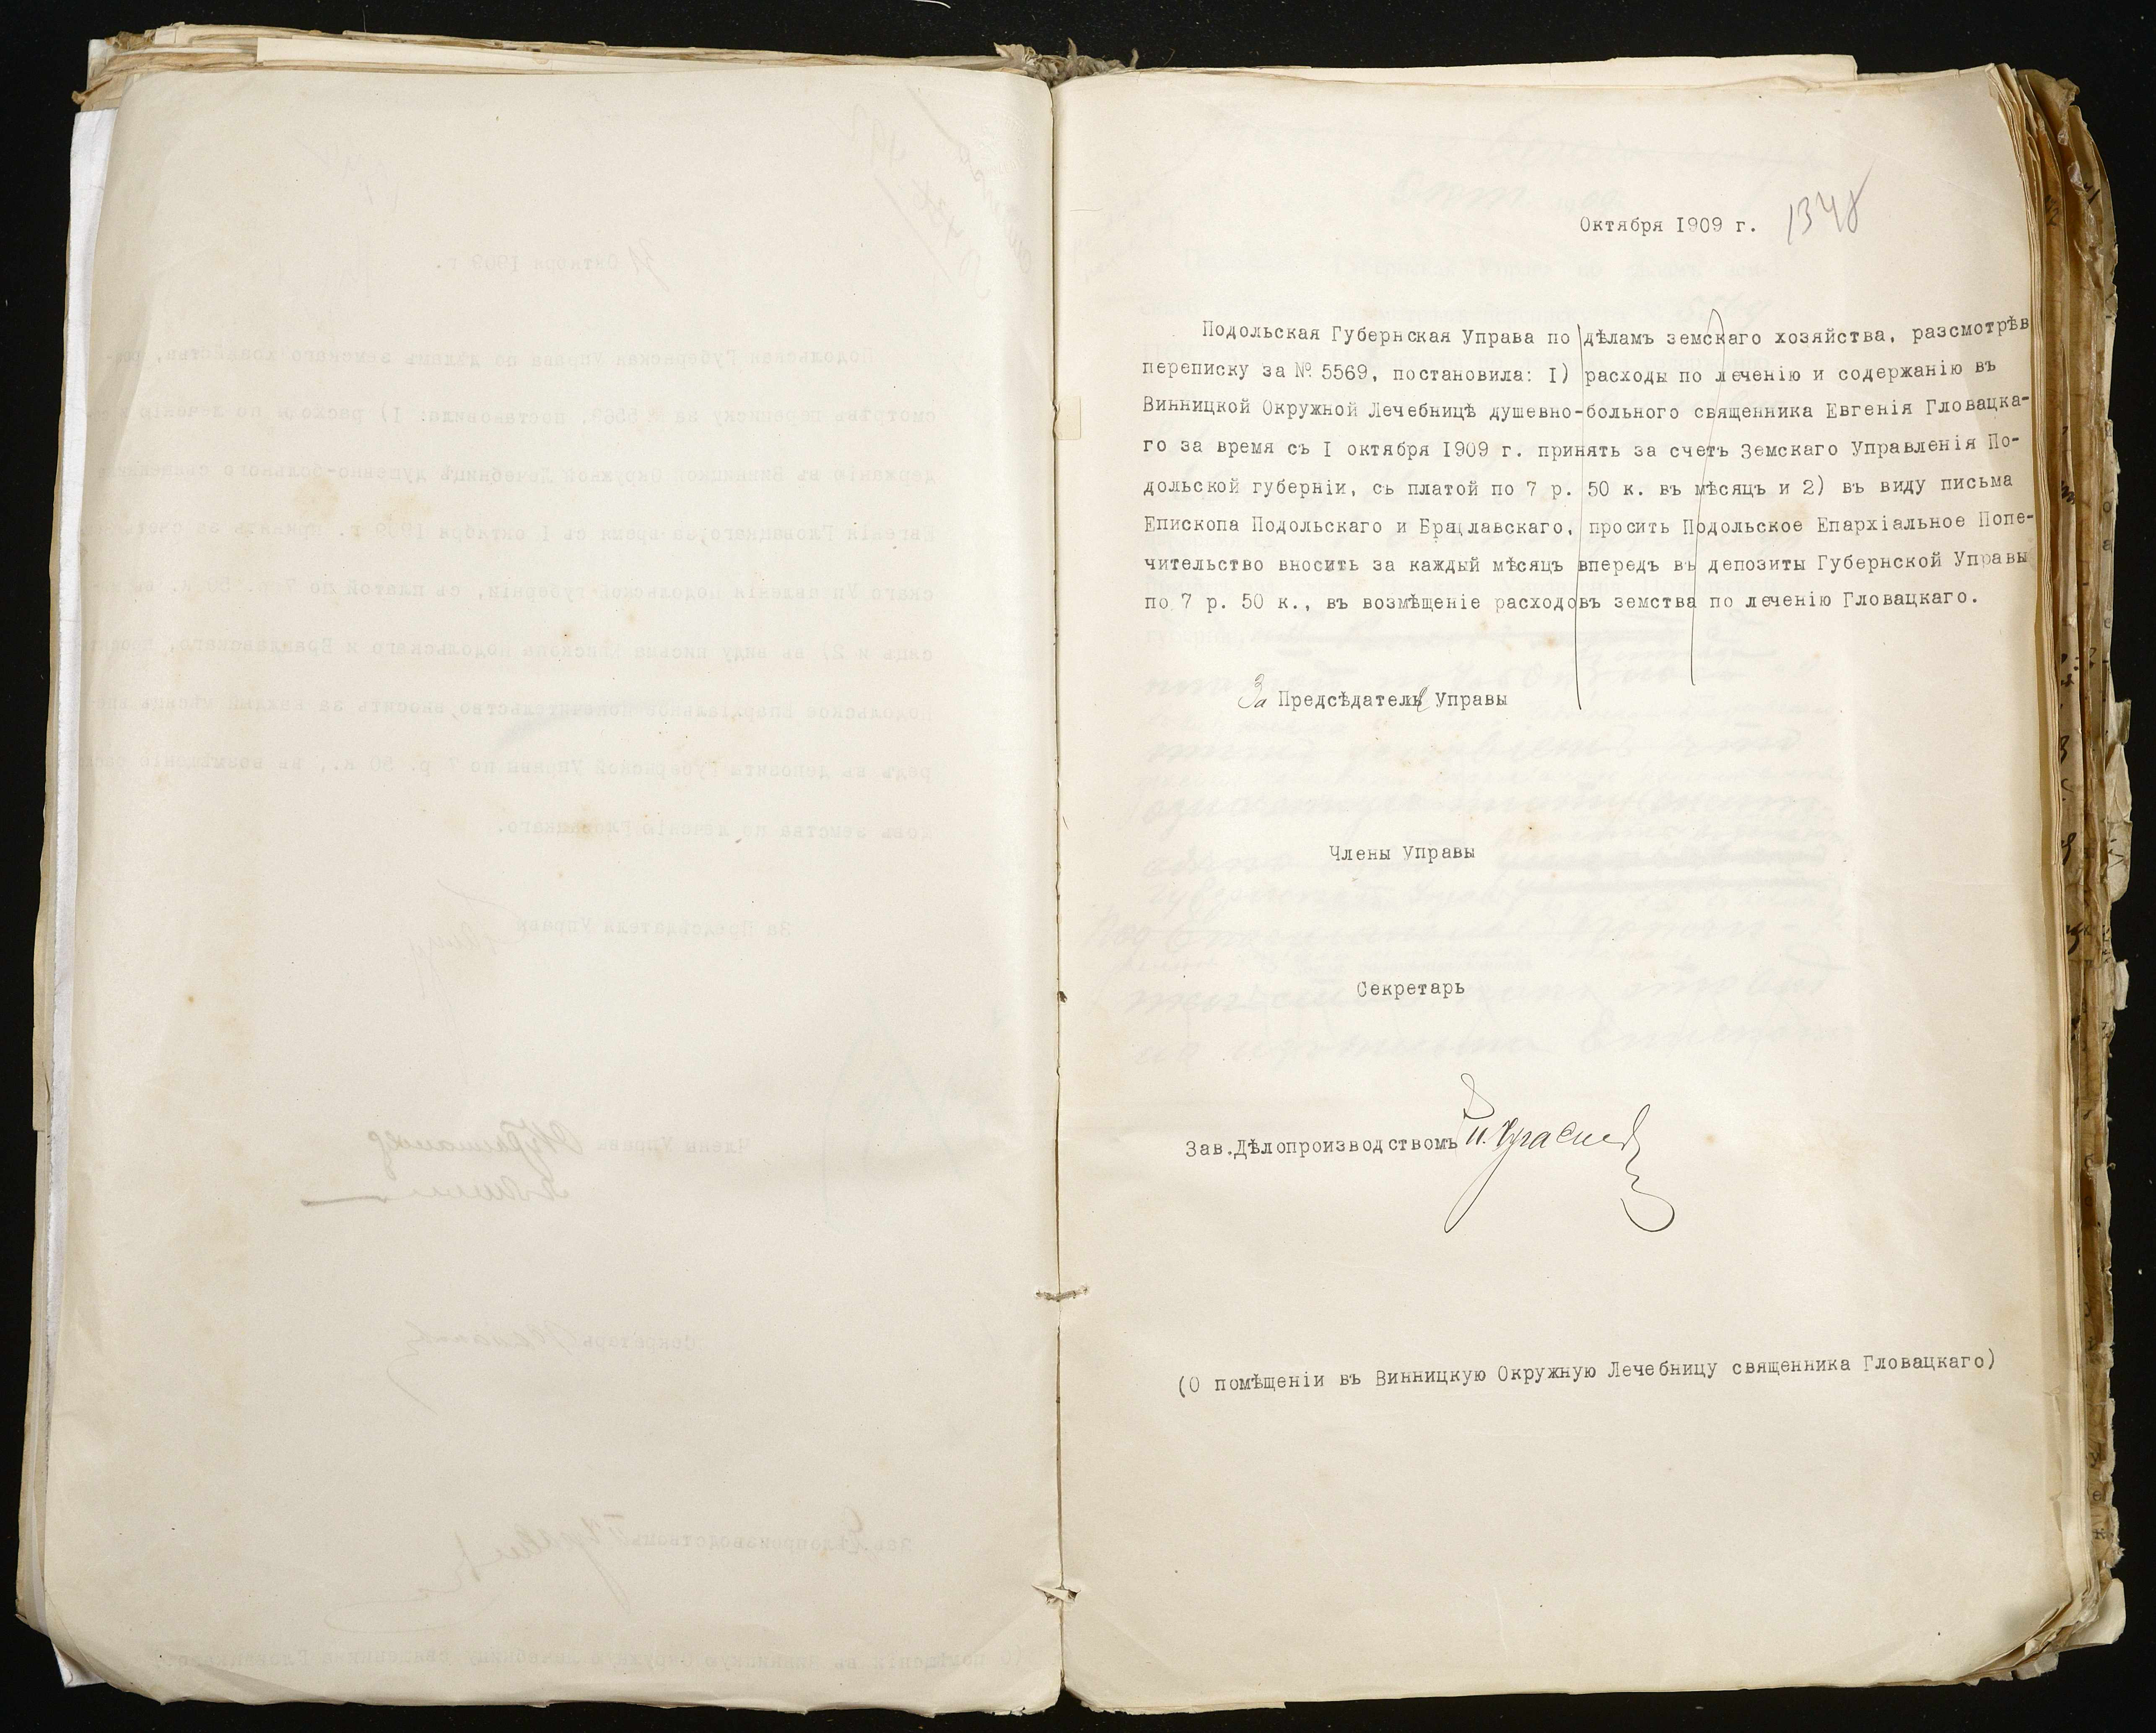 Октября 1909 г. 1348
Подольская Губернская Управа по дѣламъ земскаго хозяйства, разсмотрѣв
переписку за № 5569, постановила: I) расходы по леченію и содержанію въ
Винницкой Окружной Лечебницѣ душевно-больного священника Евгенія Гловацка-
го за время съ I октября 1909 г. принять за счетъ Земскаго Управленія По-
дольской губерніи, съ платой по 7 р. 50 к. въ мѣсяцъ и 2) въ виду письма
Епископа Подольскаго и Брацлавскаго, просить Подольское Епархіальное Попе-
чительство вносить за каждый мѣсяцъ впередъ въ депозиты Губернской Управы
по 7 р. 50 к., въ возмѣщеніе расходовъ земства по леченію Гловацкаго.
За Предсѣдателя Управы
Члены Управы
Секретарь
Зав.Дѣлопроизводствомъ
(О помѣщеніи въ Винницкую Окружную Лечебницу священника Гловацкаго)